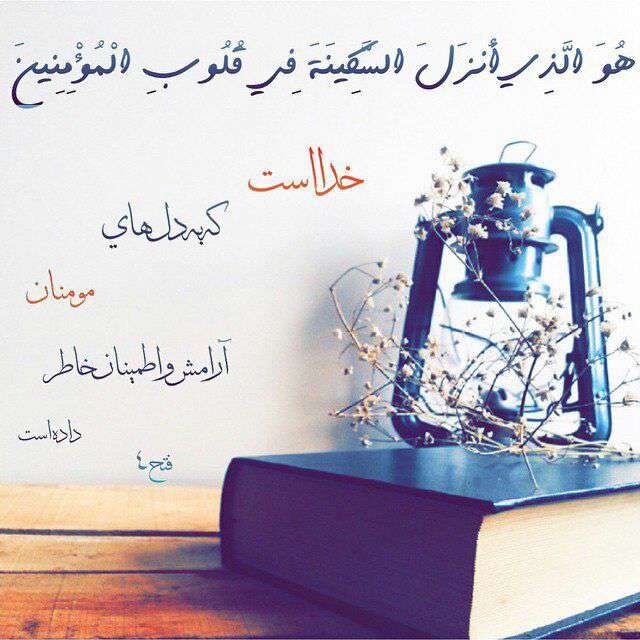 هُوَ الَّذِي أَنزَلَ السَّكِينَةَ فِي قُلُوبِ الْمُؤْمِنِينَ
خدا است
که به دل های
مومنان
آرامش و اطمینان خاطر
داده است
فتح ٤